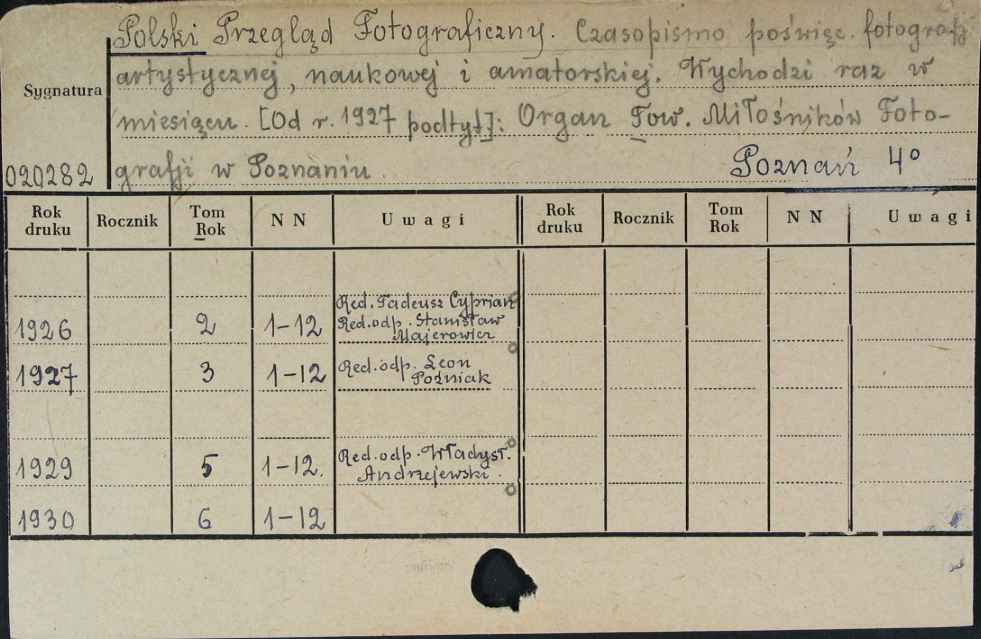 Polski Przegląd Fotograficzny. Czasopismo poświęc. fotografji
Sygnatura artystycznej, naukowej i amatorskiej. Wychodzi raz w
miesiącu. [Od r. 1927 podtyt]: Organ Tow. Miłośników Foto-
020282 grafji w Poznaniu. Poznań 4°
Rok druku Rocznik Tom Rok N N Uwagi Rok druku Rocznik Tom Rok N N Uwagi
1926 2 1-12 Red. Tadeusz Cyprian
Red. odp. Stanisław
Majerowicz
1927 3 1-12 Red. odp. Leon
Poźniak
1929 5 1-12. Red. odp. Władysł.
Andrzejewski.
1930 6 1-12